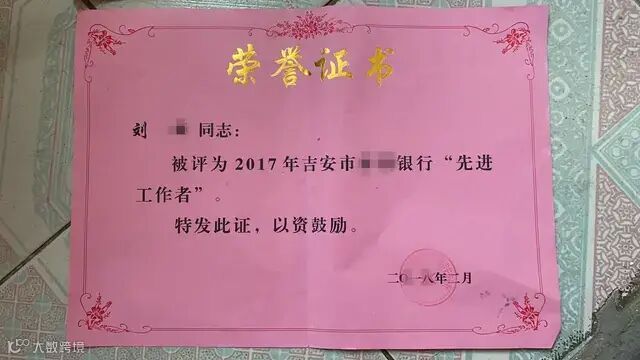 荣誉证书
刘 同志：
被评为2017年吉安市 银行“先进
工作者”。
特发此证，以资鼓励。
二〇一八年二月
大数跨境